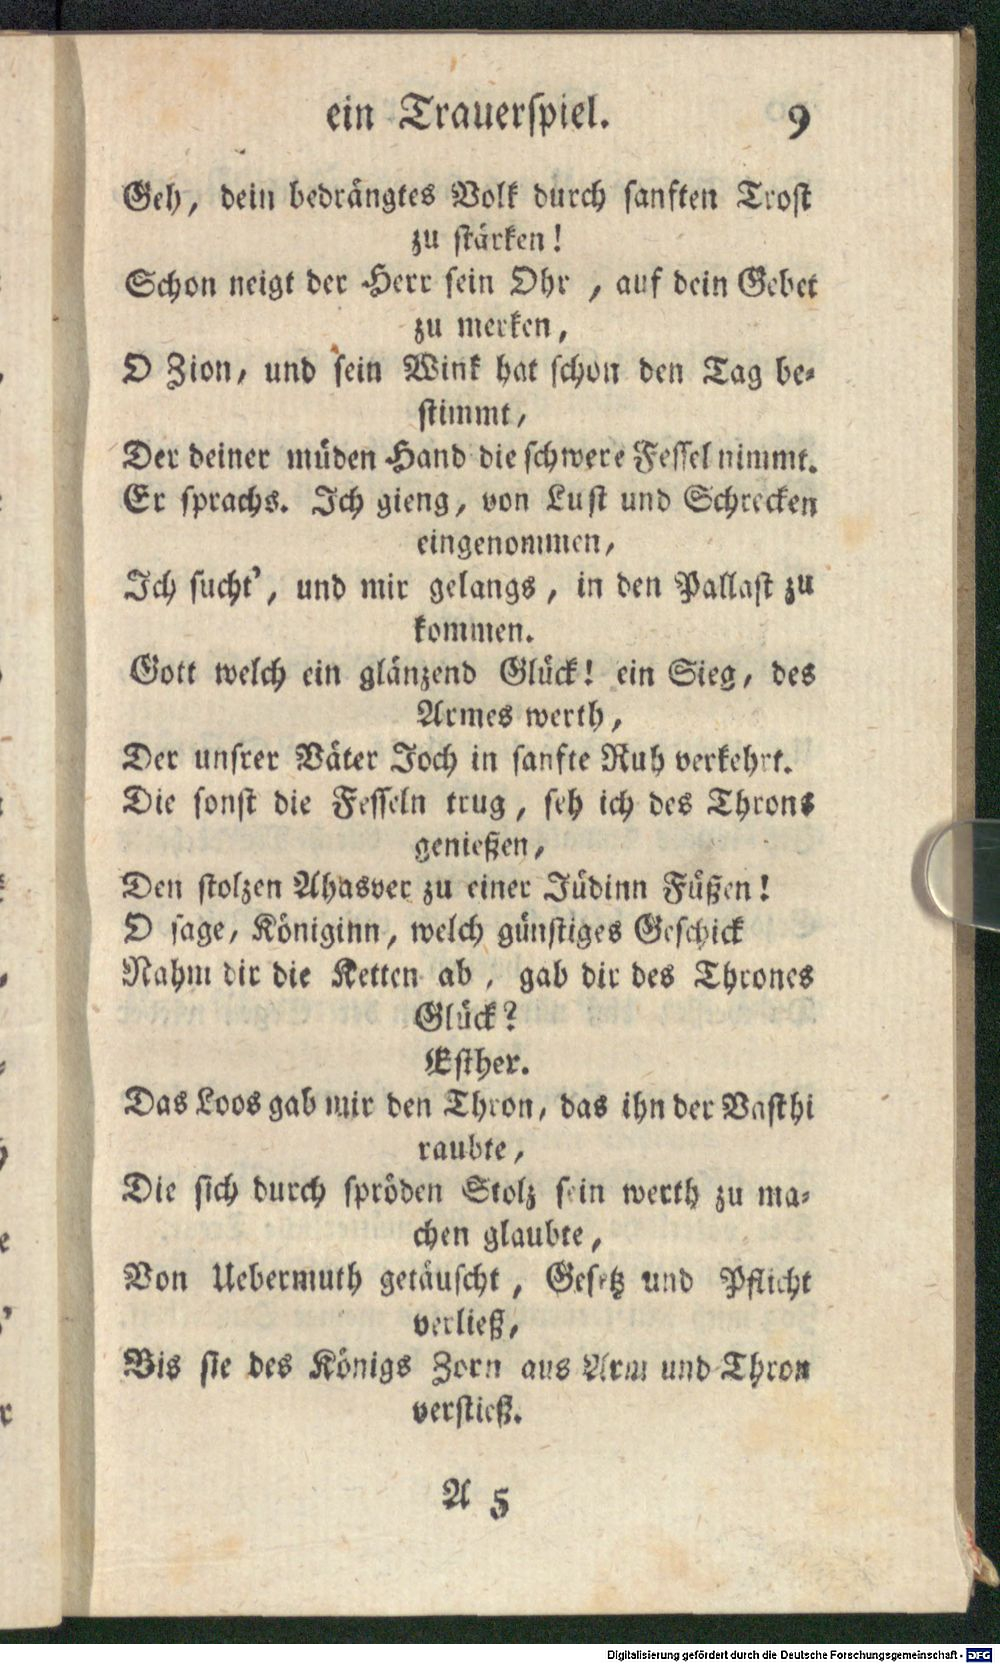 ein Trauerſpiel. 9
Geh, dein bedrängtes Volk durch ſanften Troſt
zu ſtärken!
Schon neigt der Herr ſein Ohr, auf dein Gebet
zu merken,
O Zion, und ſein Wink hat ſchon den Tag be-
ſtimmt,
Der deiner müden Hand die ſchwere Feſſel nimmt.
Er ſprachs. Ich gieng, von Luſt und Schrecken
eingenommen,
Ich ſucht’, und mir gelangs, in den Pallaſt zu
kommen.
Gott welch ein glänzend Glück! ein Sieg, des
Armes werth,
Der unſrer Väter Joch in ſanfte Ruh verkehrt.
Die ſonſt die Feſſeln trug, ſeh ich des Throns
genießen,
Den ſtolzen Ahasver zu einer Jüdinn Füßen!
O ſage, Königinn, welch günſtiges Geſchick
Nahm dir die Ketten ab, gab dir des Thrones
Glück?
Eſther.
Das Loos gab mir den Thron, das ihn der Vaſthi
raubte,
Die ſich durch ſpröden Stolz ſein werth zu ma-
chen glaubte,
Von Uebermuth getäuſcht, Geſetz und Pflicht
verließ,
Bis ſie des Königs Zorn aus Arm und Thron
verſtieß.
A 5
Digitalisierung gefördert durch die Deutsche Forschungsgemeinschaft - DFG